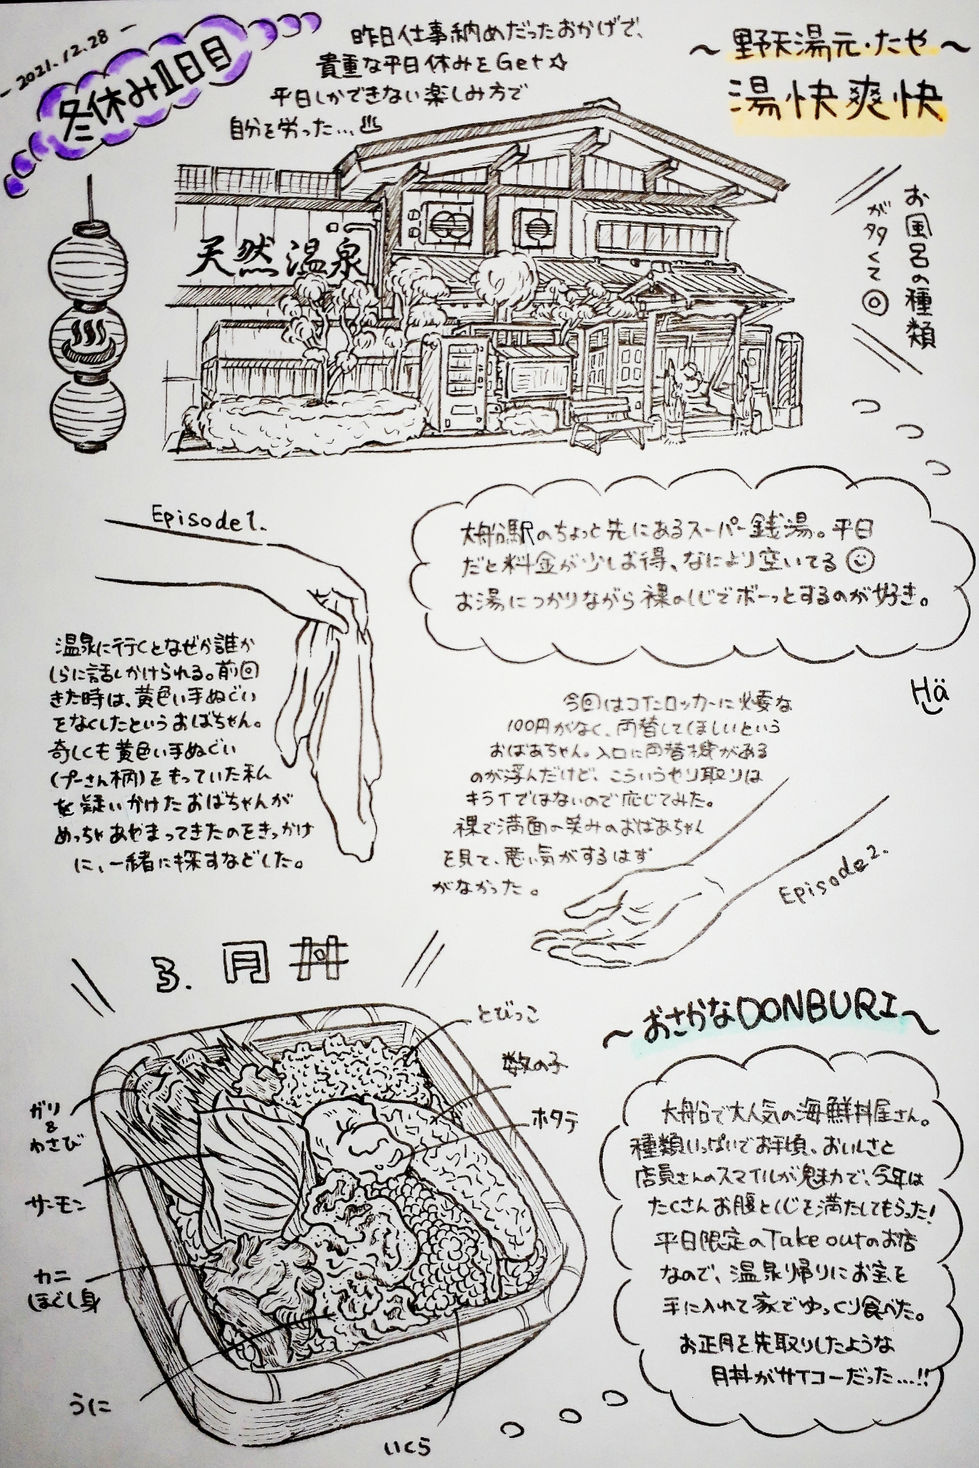 - 2021.12.28 -
冬休み1日目
昨日仕事納めだったおかげで、
貴重な平日休みをGet☆
平日しかできない楽しみ方で
自分を労った…♨
〜野天湯元・たや〜
湯快爽快
お風呂の種類
が多くて◎
天然温泉
Episode1.
大船駅のちょっと先にあるスーパー銭湯。平日
だと料金が少しお得、なにより空いてる☺
お湯につかりながら裸の心でボーっとするのが好き。
温泉に行くとなぜか誰か
しらに話しかけられる。前回
きた時は、黄色い手ぬぐい
をなくしたというおばちゃん。
奇しくも黄色い手ぬぐい
(プーさん柄)をもっていた私
を疑いかけたおばちゃんが
めっちゃあやまってきたのをきっかけ
に、一緒に探すなどした。
Hä
今回はコインロッカーに必要な
100円がなく、両替してほしいという
おばあちゃん。入口に両替機がある
のが浮んだけど、こういうやり取りは
キライではないので応じてみた。
裸で満面の笑みのおばあちゃん
を見て、悪い気がするはず
がなかった。
Episode2.
3. 月丼
〜おさかなDONBURI〜
とびっこ
数の子
ホタテ
ガリ
&
わさび
サーモン
カニ
ほぐし身
うに
いくら
大船で大人気の海鮮丼屋さん。
種類いっぱいでお手頃。おいしさと
店員さんのスマイルが魅力で、今年は
たくさんお腹と心を満たしてもらった!
平日限定のTake outのお店
なので、温泉帰りにお宝を
手に入れて家でゆっくり食べた。
お正月を先取りしたような
月丼がサイコーだった…!!